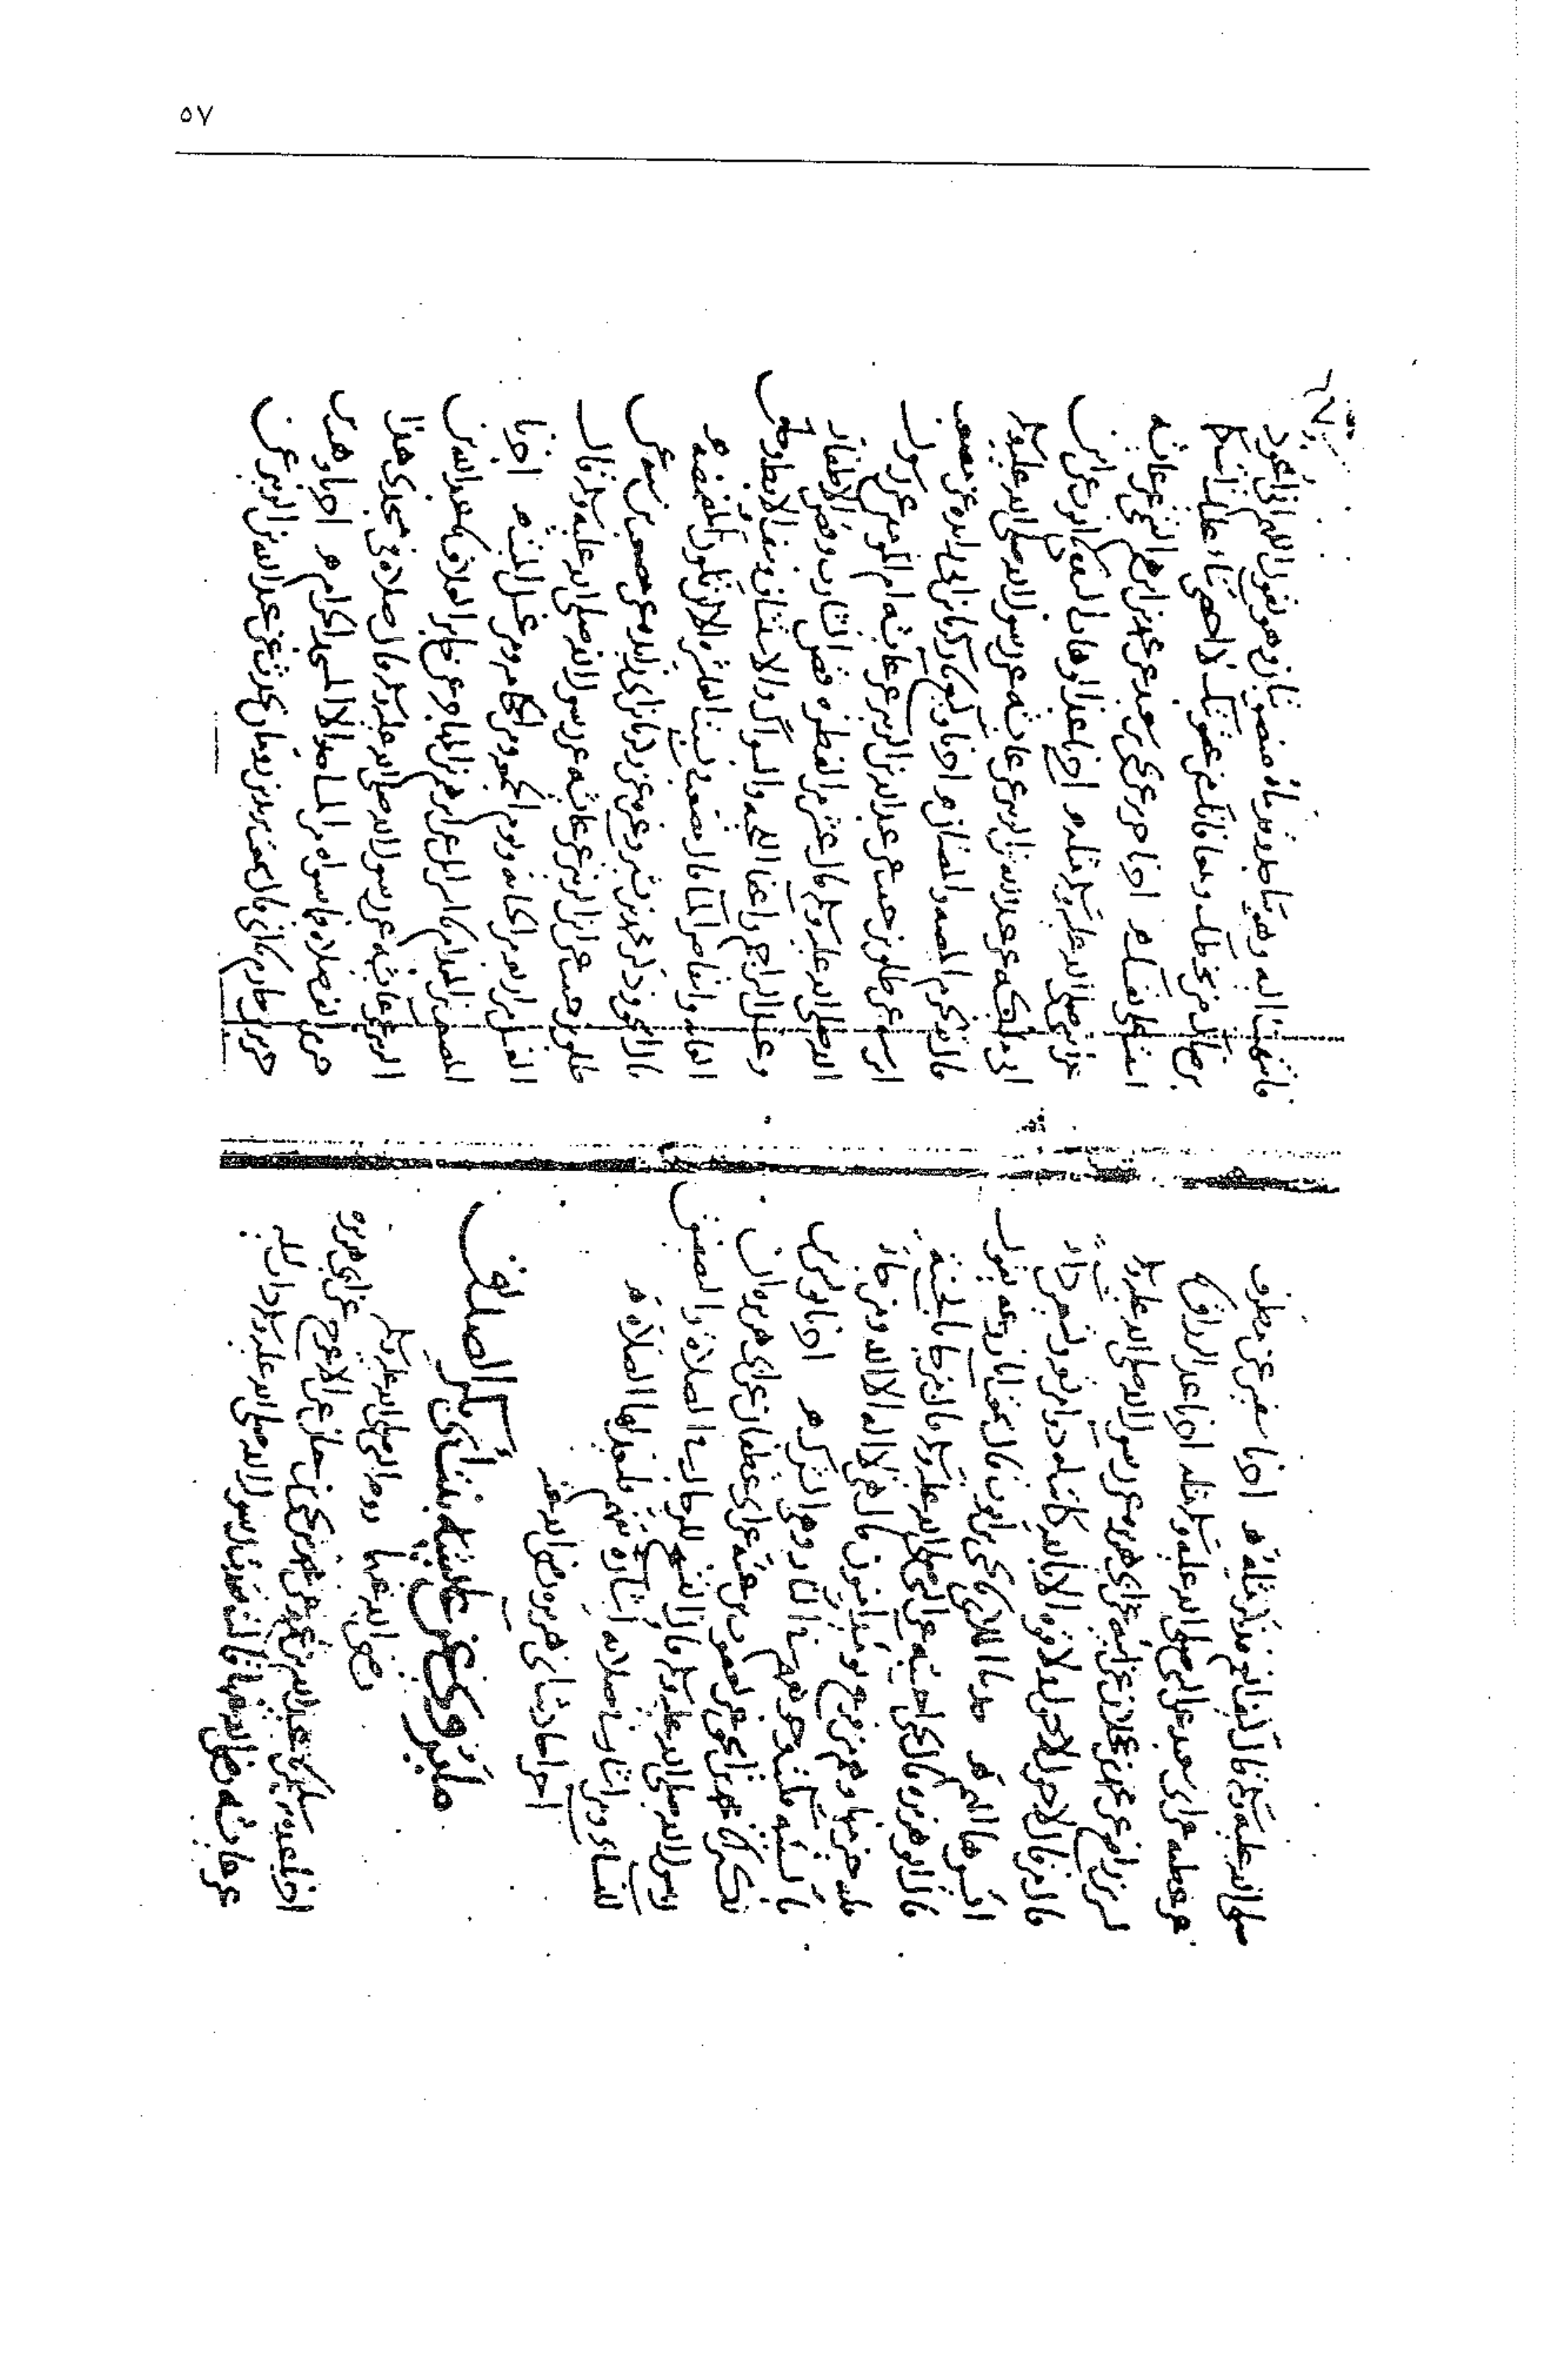 ٥٧
صلى الله عليه وسلم قال كيف انعم فذكر مثله اخبرنا سفين عن مطرف
عن عطيه عن ابى سعيد عن النبى صلى الله عليه وسلم مثله اخبرنا عبد الرزاق
بن رافع عن محمد بن عجلان عن ابيه عن ابى هريره عن رسول الله صلى الله عليه وسلم
قال من قال لا حول ولا قوه الا بالله كان له دواء من تسعه وتسعين داء
ايسرها الهم الملائى يحيى بن ايوب قال سمعت ابا زرعه يقول
قال ابو هريره عن النبى صلى الله عليه وسلم قال من جا بالحسنه
فله خير منها وهم من فزع يومئذ امنون قال هى لا اله الا الله ومن جا
بالسيئه فكبت وجوههم فى النار وهى الشرك اخبرنا يونس
بن بكير عن يعقوب بن عتبه عن ابى غطفان عن ابى هريره ان
رسول الله صلى الله عليه وسلم قال التسبيح للرجال فى الصلاه والتصفيق
للنساء ومن اشار فى صلاته اشاره تفهم فليعد لها الصلاه
اخر احاديث ابى هريره رضى الله عنه
ما يروى عن عائشة بنت ابى بكر الصديق
رضى الله عنها زوج النبى صلى الله عليه وسلم
اخبرنا عبده بن سليمان عن عبيد الله بن عمر عن محمد بن يحيى بن حبان عن الاعرج عن ابى هريره
عن عائشه رضى الله عنها قالت فقدت رسول الله صلى الله عليه وسلم ذات ليله
فانتهيت اليه وهو ساجد وقدماه منصوبتان وهو يقول اللهم انى اعوذ
برضاك من سخطك وبمعافاتك من عقوبتك لا احصى ثناء عليك انت كما
اثنيت على نفسك اخبرنا جرير عن يحيى بن سعيد عن محمد بن ابراهيم التيمى عن عائشه
عن النبى صلى الله عليه وسلم مثله اخبرنا عبد الوهاب الثقفى نا ايوب عن ابن
ابى مليكه عن عبد الله بن الزبير عن عائشه عن رسول الله صلى الله عليه وسلم
قال لا تحرم المصه والمصتان اخبرنا وكيع نا زكريا بن ابى زائده عن مصعب
بن شيبه عن طلق بن حبيب عن عبد الله بن الزبير عن عائشه ام المومنين عن رسول
الله صلى الله عليه وسلم قال عشر من الفطره قص الشارب وقص الاظفار
وغسل البراجم واعفا اللحيه والسواك والاستنشاق ونتف الابط وحلق
العانه وانتقاص الما قال مصعب نسيت العاشره الا ان تكون المضمضه
قال اسحق وذكر محمد بن بشر وغيره عن زكريا بن ابى زايده عن مصعب بن شيبه عن
طلق بن حبيب عن ابن الزبير عن عائشه عن رسول الله صلى الله عليه وسلم قال
الغسل من اربعه من الجنابه ويوم الجمعه ومن الحجامه ومن غسل الميت اخبرنا
المصعب بن المقدام نا اسرائيل عن ابراهيم بن المهاجر عن عبد الله بن
الزبير عن عائشه عن رسول الله صلى الله عليه وسلم قال صلاه فى مسجدى هذا
خير من الف صلاه فيما سواه من المساجد الا المسجد الحرام اخبرنا وهب بن
جرير بن حازم حدثنى ابى قال سمعت يزيد بن رومان يحدث عن عبد الله بن الزبير عن